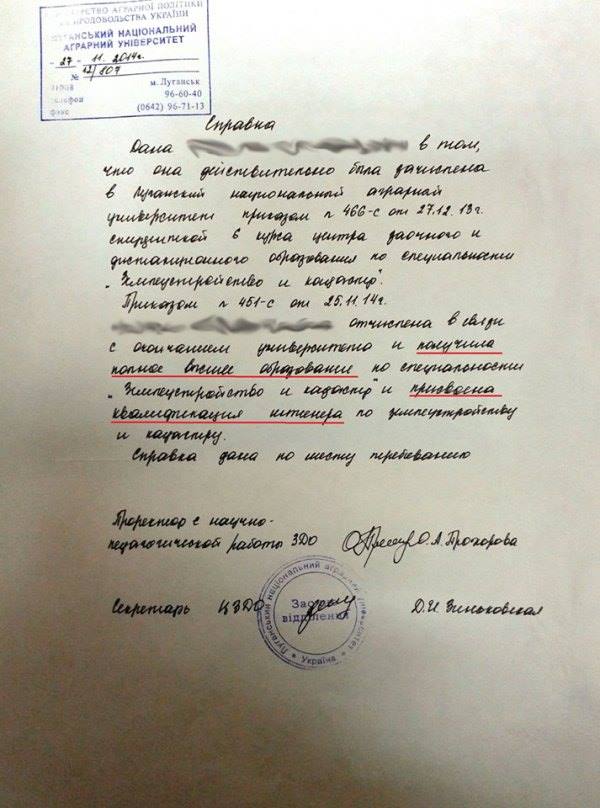 МІНІСТЕРСТВО АГРАРНОЇ ПОЛІТИКИ
ТА ПРОДОВОЛЬСТВА УКРАЇНИ
ЛУГАНСЬКИЙ НАЦІОНАЛЬНИЙ
АГРАРНИЙ УНІВЕРСИТЕТ
- 27 - 11. 2014г.
№ 12/107
м.Луганськ
96-60-40
телефон
факс (0642) 96-71-13
Справка
Дана в том,
что она действительно была зачислена
в Луганский национальный аграрный
университет приказом № 466-с от 27.12.13г.
студенткой 6 курса центра заочного и
дистанционного образования по специальности
„Землеустройство и кадастр".
Приказом № 451-с от 25.11.14г.
отчислена в связи
с окончанием университета и получила
полное высшее образование по специальности
„Землеустройство и кадастр" и присвоена
квалификация инженера по землеустройству
и кадастру.
Справка дана по месту требованию
Проректор с научно-
педагогической работы ЗДО О.А. Прохорова
Секретарь ЦЗДО Д.И. Зиньковская
Луганський національний аграрний університет * Україна *
Заочне
відділення